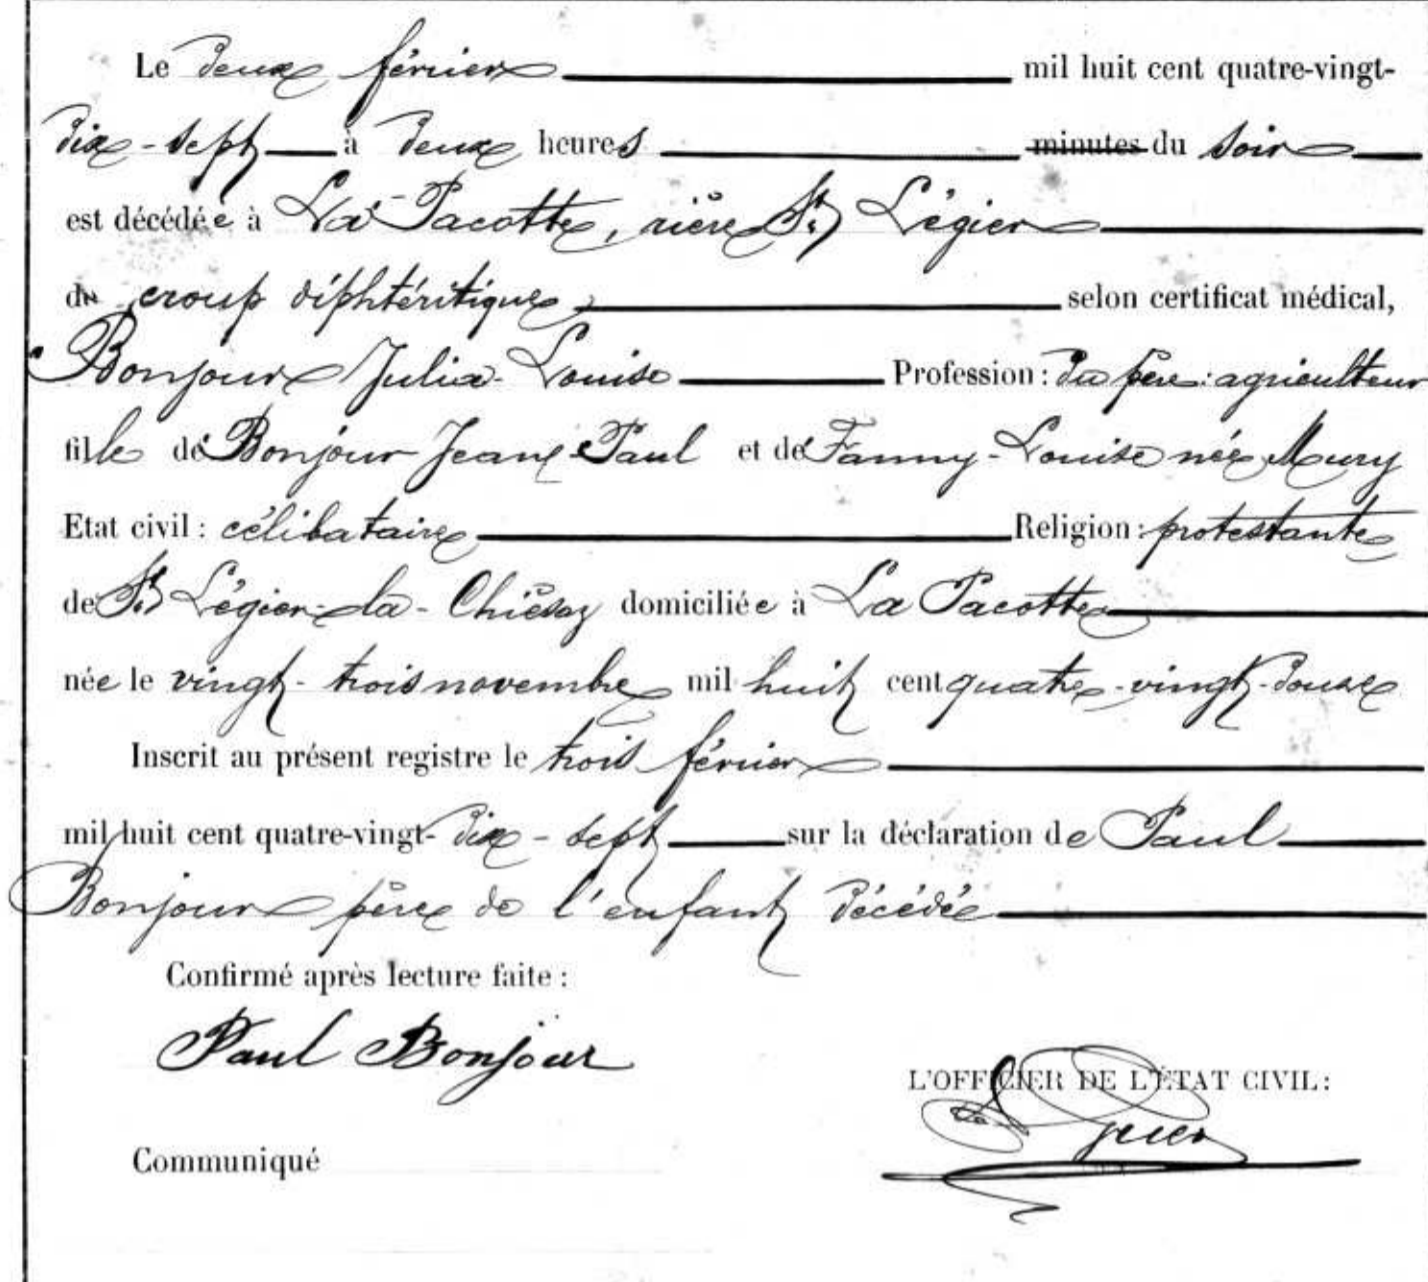 Le deux février mil huit cent quatre-vingt-
dix-sept à deux heures minutes du soir
est décédée à La Pacotte, rière St Légier
du croup diphtéritique, selon certificat médical,
Bonjour Julia-Louise Profession : du père: agriculteur
fille de Bonjour Jean-Paul et de Fanny-Louise née Mury
Etat civil : célibataire Religion : protestante
de St Légier-la-Chiésaz domiciliée à La Pacotte
née le vingt-trois novembre mil huit cent quatre-vingt-douze
Inscrit au présent registre le trois février
mil huit cent quatre-vingt-dix-sept sur la déclaration de Paul
Bonjour père de l'enfant décédée
Confirmé après lecture faite :
Paul Bonjour
L'OFFICIER DE L'ÉTAT CIVIL :
Communiqué